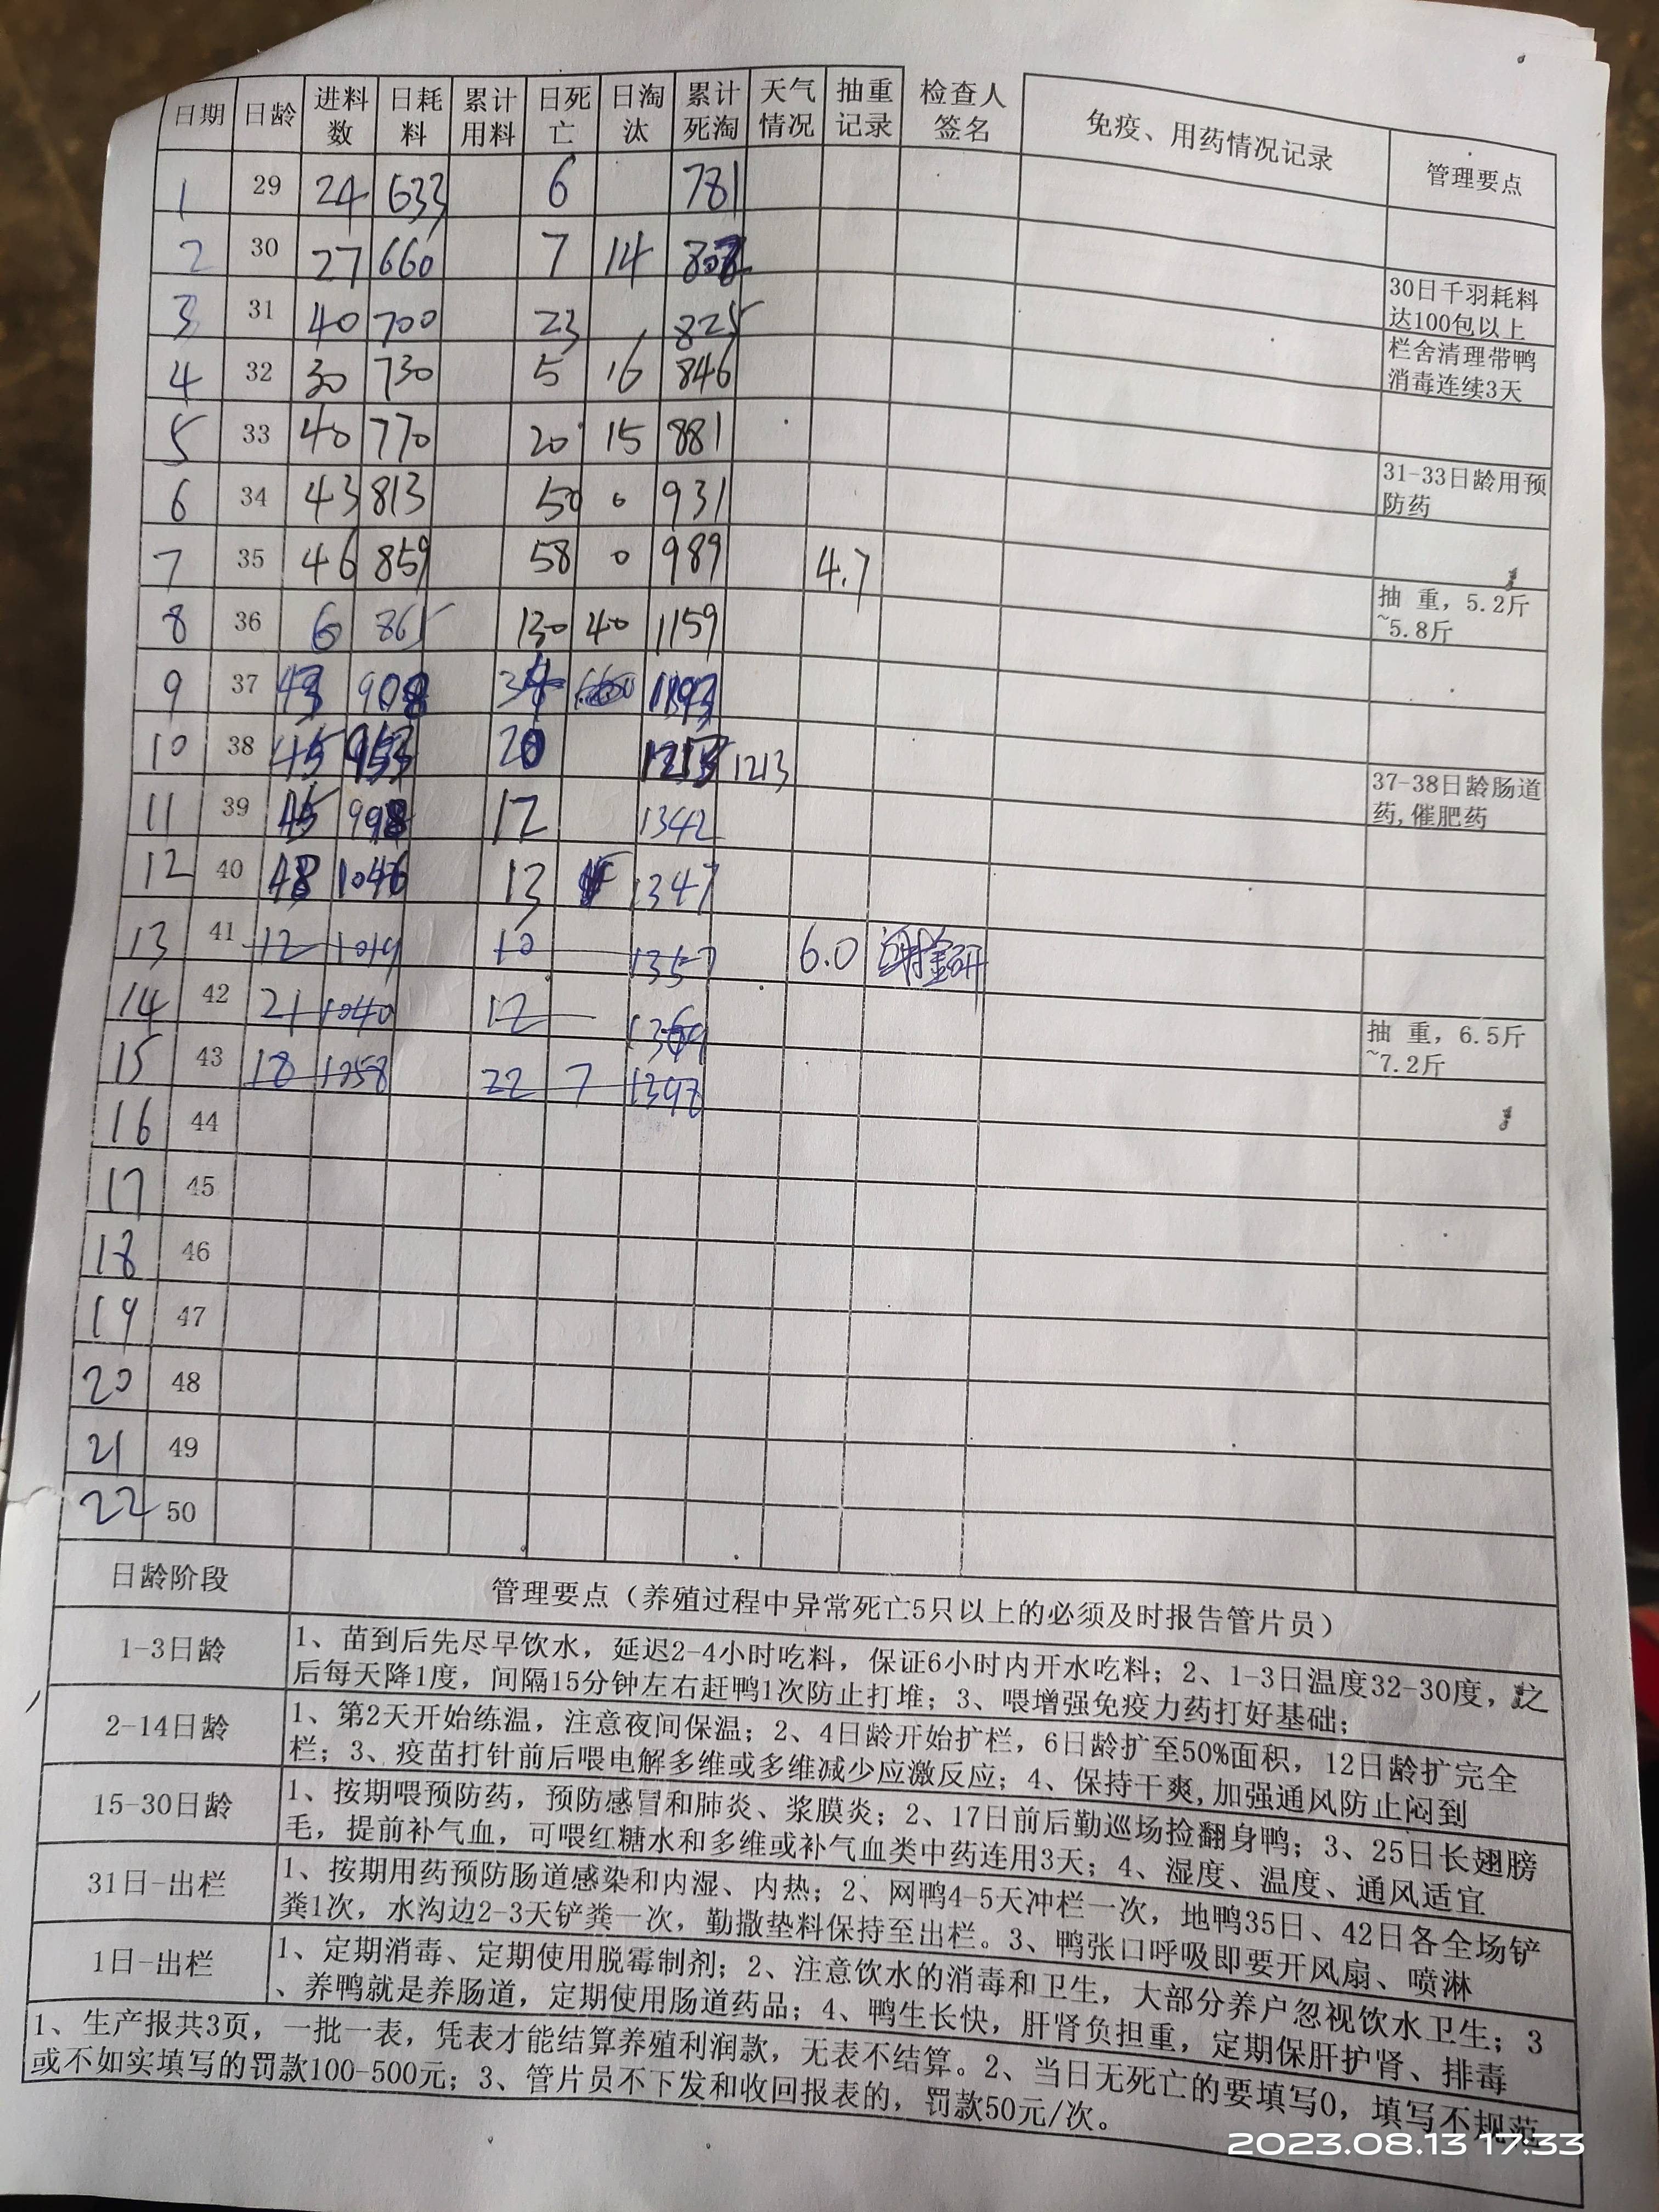 日期 日龄 进料数 日耗料 累计用料 日死亡 日淘汰 累计死淘 天气情况 抽重记录 检查人签名 免疫、用药情况记录 管理要点
1 29 24 633 6 781
2 30 27 660 7 14
3 31 40 700 23 825 30日千羽耗料达100包以上
4 32 30 730 5 16 846 栏舍清理带鸭消毒连续3天
5 33 40 770 20 15 881
6 34 43 813 50 0 931 31-33日龄用预防药
7 35 46 859 58 0 989 4.7
8 36 6 865 130 40 1159 抽 重，5.2斤~5.8斤
9 37 43 908 1193
10 38 45 953 20 1213 1213
11 39 45 998 12 1342 37-38日龄肠道药,催肥药
12 40 48 1046 13 1347
13 41 12 1019 10 1357 6.0
14 42 21 1040 12 1369
15 43 18 1058 22 7 1398 抽 重，6.5斤~7.2斤
16 44
17 45
18 46
19 47
20 48
21 49
22 50
日龄阶段 管理要点（养殖过程中异常死亡5只以上的必须及时报告管片员）
1-3日龄 1、苗到后先尽早饮水，延迟2-4小时吃料，保证6小时内开水吃料；2、1-3日温度32-30度，之
后每天降1度，间隔15分钟左右赶鸭1次防止打堆；3、喂增强免疫力药打好基础；
2-14日龄 1、第2天开始练温，注意夜间保温；2、4日龄开始扩栏，6日龄扩至50%面积，12日龄扩完全
栏；3、疫苗打针前后喂电解多维或多维减少应激反应；4、保持干爽,加强通风防止闷到
15-30日龄 1、按期喂预防药，预防感冒和肺炎、浆膜炎；2、17日前后勤巡场捡翻身鸭；3、25日长翅膀
毛，提前补气血，可喂红糖水和多维或补气血类中药连用3天；4、湿度、温度、通风适宜
31日-出栏 1、按期用药预防肠道感染和内湿、内热；2、网鸭4-5天冲栏一次，地鸭35日、42日各全场铲
粪1次，水沟边2-3天铲粪一次，勤撒垫料保持至出栏。3、鸭张口呼吸即要开风扇、喷淋
1日-出栏 1、定期消毒、定期使用脱霉制剂；2、注意饮水的消毒和卫生，大部分养户忽视饮水卫生；3
、养鸭就是养肠道，定期使用肠道药品；4、鸭生长快，肝肾负担重，定期保肝护肾、排毒
1、生产报共3页，一批一表，凭表才能结算养殖利润款，无表不结算。2、当日无死亡的要填写0，填写不规范
或不如实填写的罚款100-500元；3、管片员不下发和收回报表的，罚款50元/次。
2023.08.13 17:33